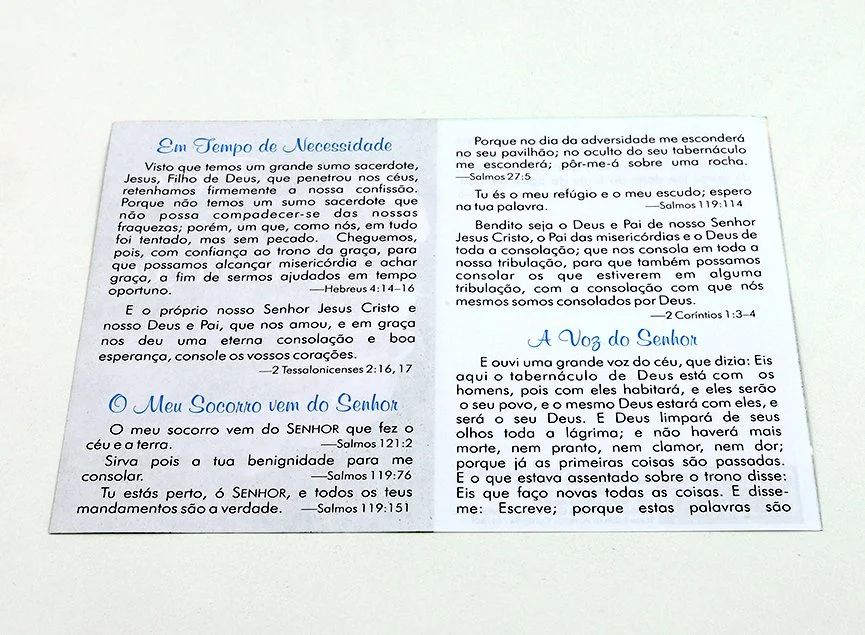 Em Tempo de Necessidade
Visto que temos um grande sumo sacerdote,
Jesus, Filho de Deus, que penetrou nos céus,
retenhamos firmemente a nossa confissão.
Porque não temos um sumo sacerdote que
não possa compadecer-se das nossas
fraquezas; porém, um que, como nós, em tudo
foi tentado, mas sem pecado. Cheguemos,
pois, com confiança ao trono da graça, para
que possamos alcançar misericórdia e achar
graça, a fim de sermos ajudados em tempo
oportuno. —Hebreus 4:14–16
E o próprio nosso Senhor Jesus Cristo e
nosso Deus e Pai, que nos amou, e em graça
nos deu uma eterna consolação e boa
esperança, console os vossos corações.
—2 Tessalonicenses 2:16, 17
O Meu Socorro vem do Senhor
O meu socorro vem do SENHOR que fez o
céu e a terra. —Salmos 121:2
Sirva pois a tua benignidade para me
consolar. —Salmos 119:76
Tu estás perto, ó SENHOR, e todos os teus
mandamentos são a verdade. —Salmos 119:151
Porque no dia da adversidade me esconderá
no seu pavilhão; no oculto do seu tabernáculo
me esconderá; pôr-me-á sobre uma rocha.
—Salmos 27:5
Tu és o meu refúgio e o meu escudo; espero
na tua palavra. —Salmos 119:114
Bendito seja o Deus e Pai de nosso Senhor
Jesus Cristo, o Pai das misericórdias e o Deus de
toda a consolação; que nos consola em toda a
nossa tribulação, para que também possamos
consolar os que estiverem em alguma
tribulação, com a consolação com que nós
mesmos somos consolados por Deus.
—2 Coríntios 1:3–4
A Voz do Senhor
E ouvi uma grande voz do céu, que dizia: Eis
aqui o tabernáculo de Deus está com os
homens, pois com eles habitará, e eles serão
o seu povo, e o mesmo Deus estará com eles, e
será o seu Deus. E Deus limpará de seus
olhos toda a lágrima; e não haverá mais
morte, nem pranto, nem clamor, nem dor;
porque já as primeiras coisas são passadas.
E o que estava assentado sobre o trono disse:
Eis que faço novas todas as coisas. E disse-
me: Escreve; porque estas palavras são